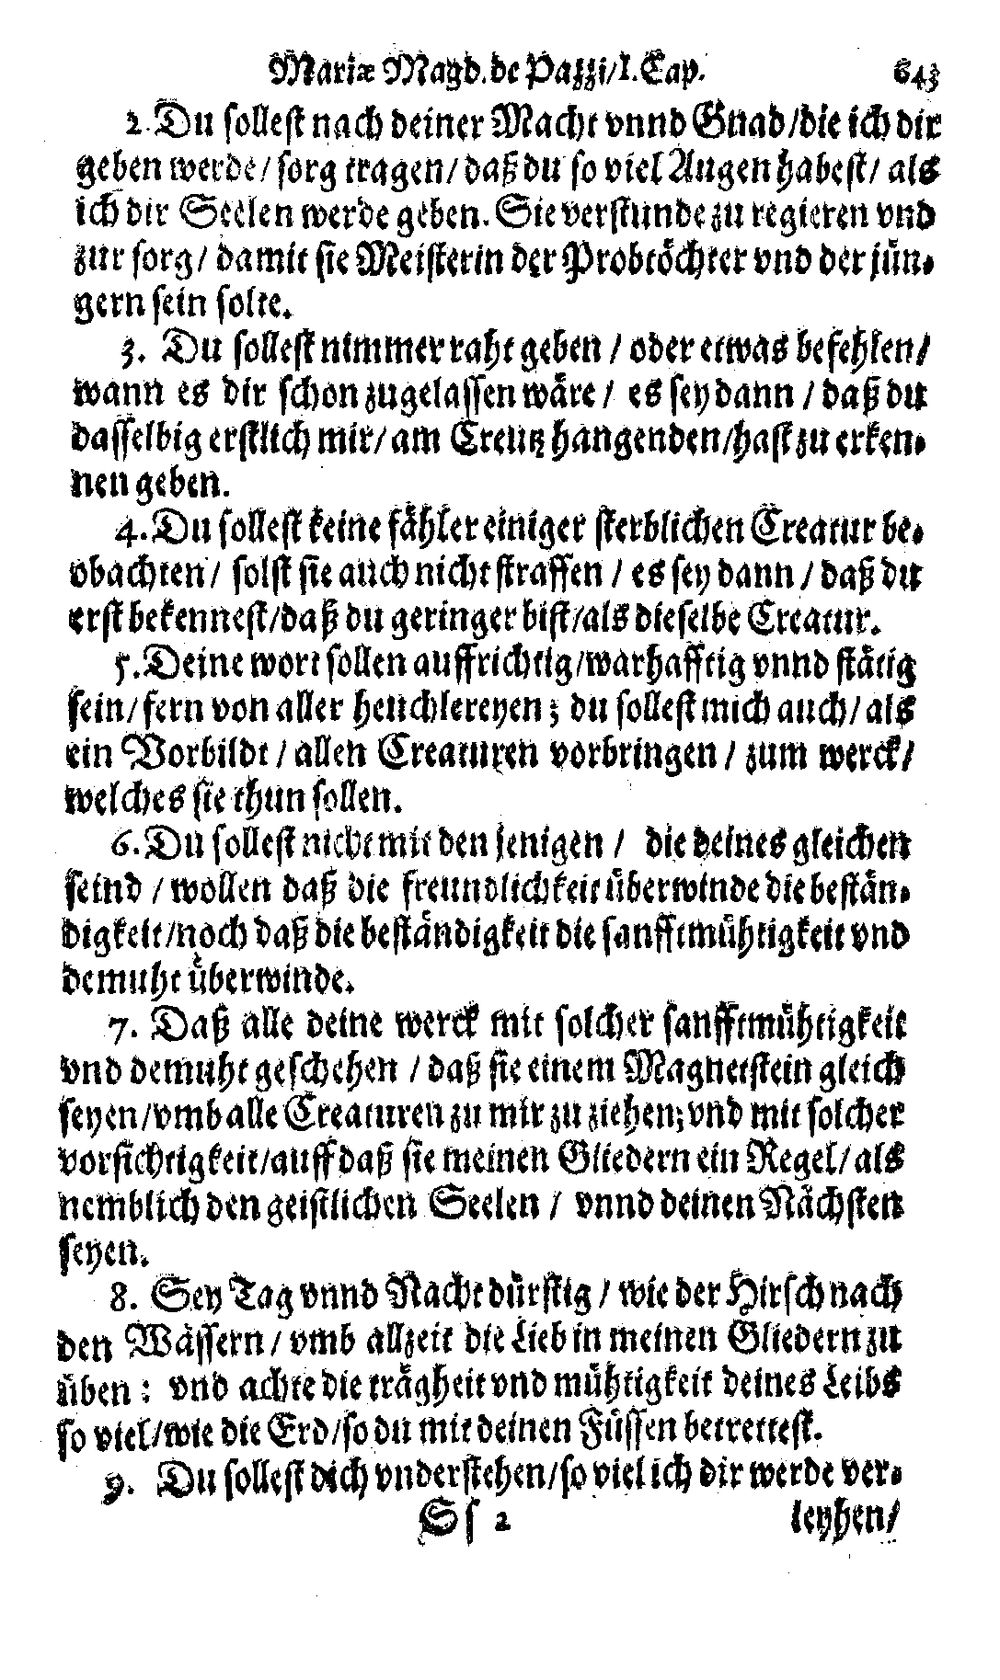 Mariæ Magd. de Pazzi/I. Cap. 643
2. Du sollest nach deiner Macht vnnd Gnad/die ich dir
geben werde/ sorg tragen/ daß du so viel Augen habest/ als
ich dir Seelen werde geben. Sie verstunde zu regieren vnd
zur sorg/ damit sie Meisterin der Probtöchter vnd der jün-
gern sein solte.
3. Du sollest nimmer raht geben / oder etwas befehlen/
wann es dir schon zugelassen wäre / es sey dann / daß du
dasselbig erstlich mir/ am Creutz hangenden/hast zu erken-
nen geben.
4. Du sollest keine fähler einiger sterblichen Creatur be-
obachten/ solst sie auch nicht straffen / es sey dann / daß du
erst bekennest/daß du geringer bist/als dieselbe Creatur.
5. Deine wort sollen auffrichtig/warhafftig vnnd stätig
sein/ fern von aller heuchlereyen; du sollest mich auch/ als
ein Vorbildt / allen Creaturen vorbringen / zum werck/
welches sie thun sollen.
6. Du sollest nicht mit den jenigen / die deines gleichen
seind / wollen daß die freundlichkeit überwinde die bestän-
digkeit/noch daß die beständigkeit die sanfftmühtigkeit vnd
demuht überwinde.
7. Daß alle deine werck mit solcher sanfftmühtigkeit
vnd demuht geschehen / daß sie einem Magnetstein gleich
seyen/vmb alle Creaturen zu mir zu ziehen; vnd mit solcher
vorsichtigkeit/auff daß sie meinen Gliedern ein Regel/ als
nemblich den geistlichen Seelen / vnnd deinen Nächsten
seyen.
8. Sey Tag vnnd Nacht dürstig / wie der Hirsch nach
den Wässern / vmb allzeit die Lieb in meinen Gliedern zu
üben : vnd achte die trägheit vnd mühtigkeit deines Leibs
so viel/wie die Erd/so du mit deinen Füssen betrettest.
9. Du sollest dich vnderstehen/so viel ich dir werde ver-
Ss 2 leyhen/